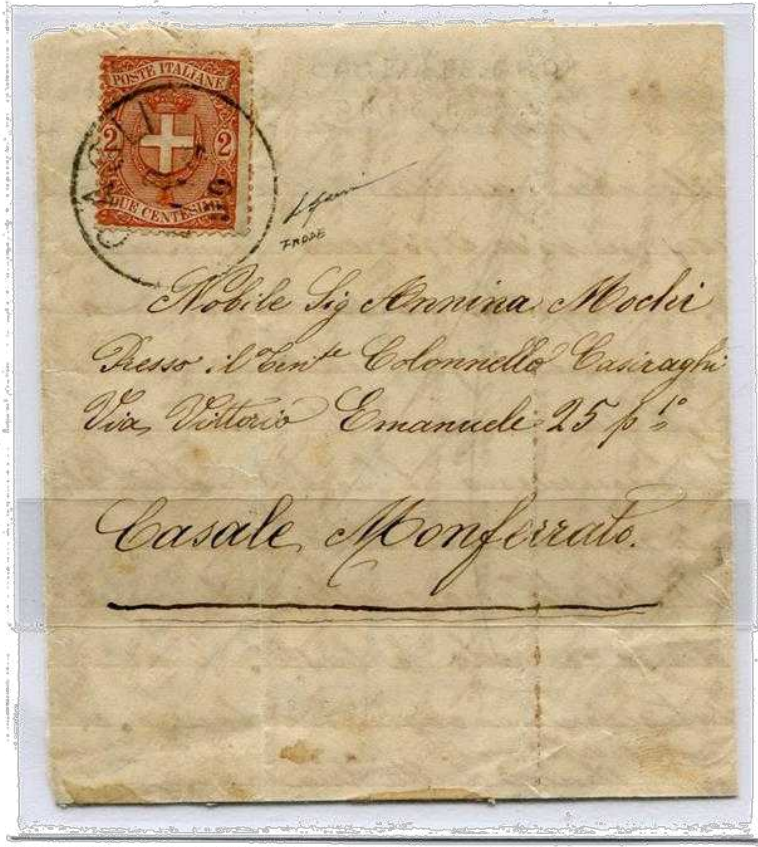 POSTE ITALIANE
2 2
DUE CENTESIMI
CAGLI
FRODE
Nobile Sig Annina Mochi
Presso il Ten.te Colonnello Casiraghi
Via Vittorio Emanuele 25 p. 1°
Casale Monferrato.